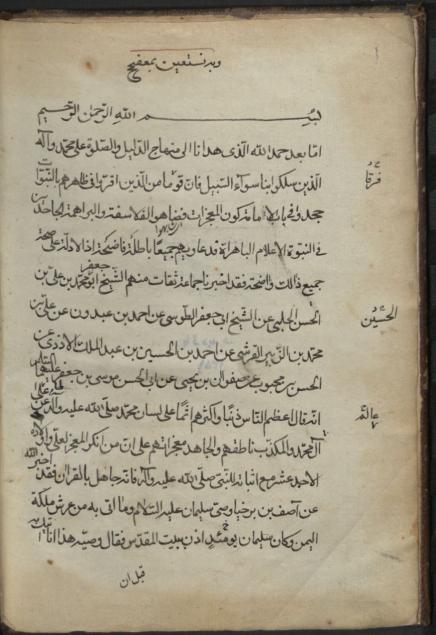 وبه نستعين
بسم الله الرحمن الرحيم
اما بعد حمد الله الذى هدانا الى منهاج الدليل والصلوة على محمد وآله
الذين سلكوا بنا سوآء السبيل فان قوما من الذين اقروا فى ظاهرهم بالنبوات
جحدوا فى الباطن المعجزات فضاهوا الفلاسفة والبراهمة الجاحدين
فى النبوة الاعلام الباهرة فدعاويهم جميعا باطلة فاضحكة اذ الادلة على صحة
جميع ذالك واضحة فقد اخبرنا جماعة ثقات منهم الشيخ ابو جعفر محمد بن على بن
الحسن الحلبى عن الشيخ ابى جعفر الطوسى عن احمد بن عبدون عن على بن
محمد بن الزبير القرشى عن احمد بن الحسين بن عبد الملك الاودى عن
الحسن بن محبوب عن صفوان بن يحيى عن ابى الحسن موسى بن جعفر عليهما السلام
انه قال اعظم الناس ذنبا واكثرهم اثما على لسان محمد صلى الله عليه وآله الطاعن على عالم
آل محمد والمكذب ناطقهم والجاهد معجزاتهم على ان من انكر المعجز لعلى واولاده
الاحد عشر مع اثباته للنبى صلى الله عليه وآله فانه جاهل بالقران فقد اخبر الله
عن آصف بن برخيا وصى سليمان عليه السلام وما اتى به من عرش ملكة
اليمن وكان سليمان يومئذ اذن ببيت المقدس فقال وصيه هذا انا آتيك به
قبل ان
فرقا
الحسين
عالم